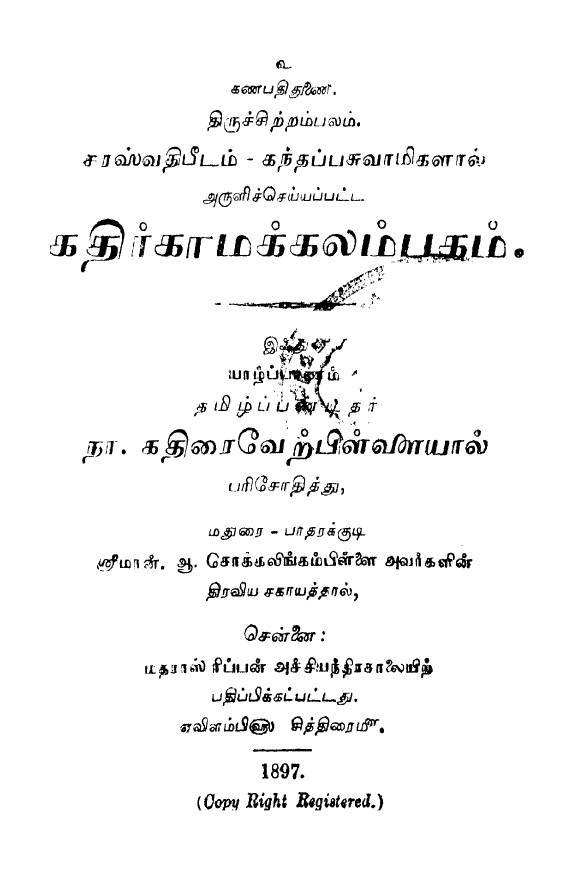 உ
கணபதிதுணை.
திருச்சிற்றம்பலம்.
சரஸ்வதிபீடம் - கந்தப்பசுவாமிகளால்
அருளிச்செய்யப்பட்ட
கதிர்காமக்கலம்பகம்.
யாழ்ப்பாணம்
தமிழ்ப்பண்டிதர்
நா. கதிரைவேற்பிள்ளையால்
பரிசோதித்து,
மதுரை - பாதரக்குடி
ஸ்ரீமான். ஆ. சொக்கலிங்கம்பிள்ளை அவர்களின்
திரவிய சகாயத்தால்,
சென்னை:
மதராஸ் ரிப்பன் அச்சியந்திரசாலையிற்
பதிப்பிக்கட்பட்டது.
ஏவிளம்பி௵ சித்திரை௴.
1897.
(Copy Right Registered.)